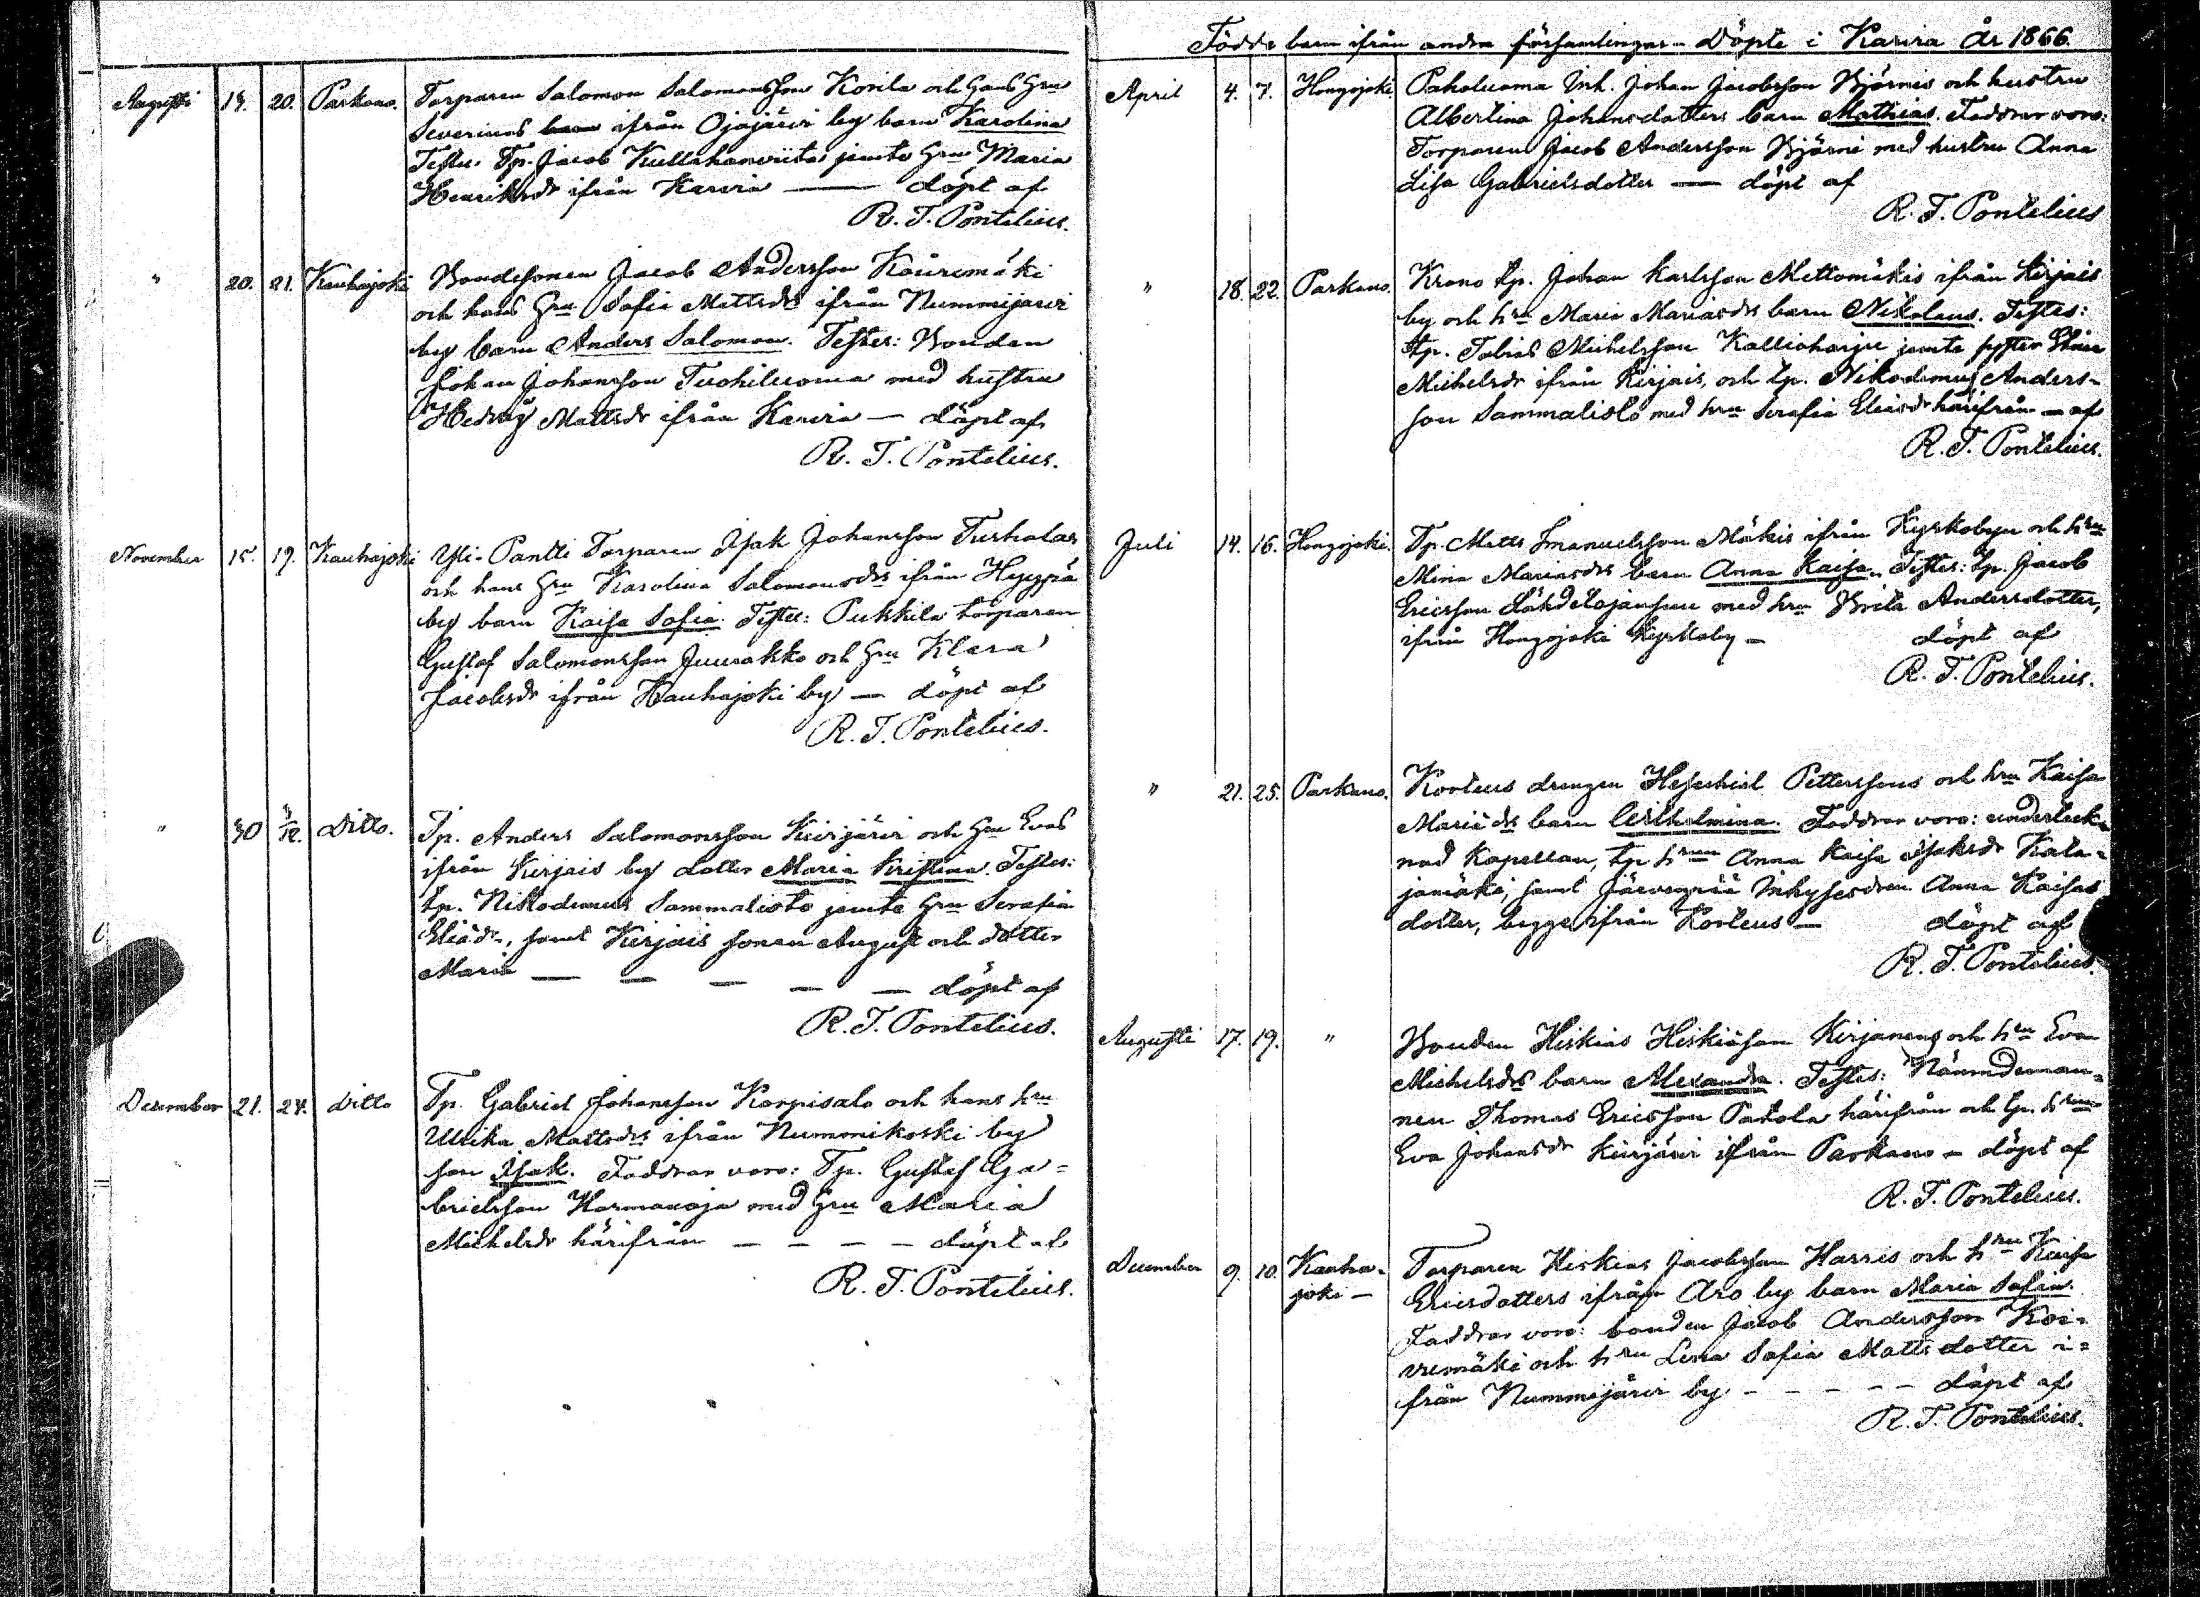 Augusti 19. 20. Parkano. Torparen Salomon Salomonsson Korila och hans hru
Severinas barn ifrån Ojajärvi by barn Karolina
Testes. Tp. Jacob jemte hru Maria
Henriksdr ifrån Karvia — döpt af
R. T. Pontelius.
" 20. 21. Kauhajoki Bondesonen Jacob Andersson Kouremäki
och hans hru Sofia Mattsdrs ifrån Nummijärvi
by barn Anders Salomon. Testes: Bonden
Johan Johansson Tuohiluoma med hustru
Hedvig Mattsdr ifrån Karvia — döpt af
R. T. Pontelius.
November 15. 19. Kauhajoki Yli-Pantti Torparen Isak Johansson Turholas
och hans hru Karolina Salomonsdrs ifrån Hyyppä
by barn Kaisa Sofia. Testes: Pukkila torparen
Gustaf Salomonsson Juurakko och hru Klara
Jacobsdr ifrån Kauhajoki by — döpt af
R. T. Pontelius.
" 30 3/12. Ditto. Tp. Anders Salomonsson Kiirjärvi och hru Evas
ifrån Kirjais by dotter Maria Kristina. Testes:
tp. Nikodemus Sammalisto jemte hru Serafia
Eliädr, samt Kirjais sonen August och dotter
Maria — — — — — döpt af
R. T. Pontelius.
December 21. 24. Ditto Tp. Gabriel Johansson Korpisalo och hans hru
Ulrika Mattsdrs ifrån Nummikoski by
son Isak. Faddrar voro: Tp. Gustaf Ga=
brielsson Harmanoja med hru Maria
Michelsdr härifrån — — — — döpt af
R. T. Pontelius.
Födde barn ifrån andra församlingar – Döpte i Karvia År 1866.
April 4. 7. Hongojoki. Paholuoma Inh. Johan Jacobsson Björnis och hustru
Albertina Johansdotters barn Mathias. Faddrar voro:
Torparen Jacob Andersson Björni med hustru Anna
Lisa Gabrielsdotter — döpt af
R. T. Pontelius
" 18. 22. Parkano. Krono tp. Johan Karlsson Mettomäkis ifrån Kirjais
by och hru Maria Mariasdrs barn Nikolaus. Testes:
tp. Tobias Michelsson Kallioharju jemte syster
Michelsdr ifrån Kirjais, och tp. Nikodemus Anders=
son Sammalisto med hru Serafia Eliasdr härifrån — af
R. T. Pontelius.
Juli 14. 16. Hongojoki. Tp. Matts Emanuelsson Mäkis ifrån Kyrkobyn och hru
Mina Mariasdrs barn Anna Kaisa. Testes: tp. Jacob
Ericsson med hru Brita Andersdotter,
ifrån Hongojoki Kyrkoby — döpt af
R. T. Pontelius.
" 21. 25. Parkano. Korteus drengen Heseckiel Petterssons och hru Kaisa
Mariædrs barn Wilhelmina. Faddrar voro: underteck=
nad Kapellan, tp hrun Anna Kaisa Isaksdr Kata=
jamäki, samt Järvenpää Inhyses Anna Kaisas
dotter, begge ifrån Korteus — döpt af
R. T. Pontelius.
Augusti 17. 19. " Bonden Hiskias Hiskiäson Kirjanens och hru Eva
Michelsdrs barn Alexandra. Testes: Nämndeman=
nen Thomas Ericsson Patola härifrån och tp. hrun
Eva Johansdr Kiirjärvi ifrån Parkano — döpt af
R. T. Pontelius.
December 9. 10. Kauha=
joki — Torparen Hiskias Jacobsson Harris och hru Kaisa
Ericsdotters ifrån Aro by barn Maria Sofia.
Faddrar voro: bonden Jacob Andersson Koi=
vumäki och hru Lena Sofia Matts dotter i=
från Nummijärvi by — — — — — döpt af
R. T. Pontelius.